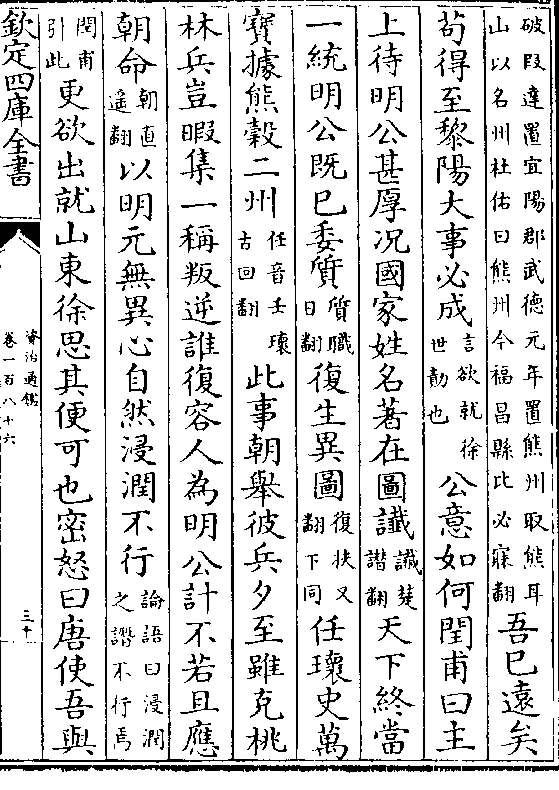 破段達置宜陽郡武德元年置熊州取熊耳
山以名州杜佑曰熊州今福昌縣比必寐翻
吾已逺矣
茍得至黎陽大事必成
言欲就徐
世勣也
公意如何閏甫曰主
上待明公甚厚况國家姓名著在圖讖
讖楚
譖翻
天下終當
一統明公既已委質
質職
日翻
復生異圖
復扶又
翻下同
任瓌史萬
寶據熊穀二州
任音壬瓌
古回翻
此事朝舉彼兵夕至雖克桃
林兵豈暇集一稱叛逆誰復容人為明公計不若且應
朝命
朝直
遥翻
以明元無異心自然浸潤不行
論語曰浸潤
之譖不行焉
閏甫
引此
更欲出就山東徐思其便可也密怒曰唐使吾與
欽定四庫全書
資治通鑑
卷一百八十六
三十